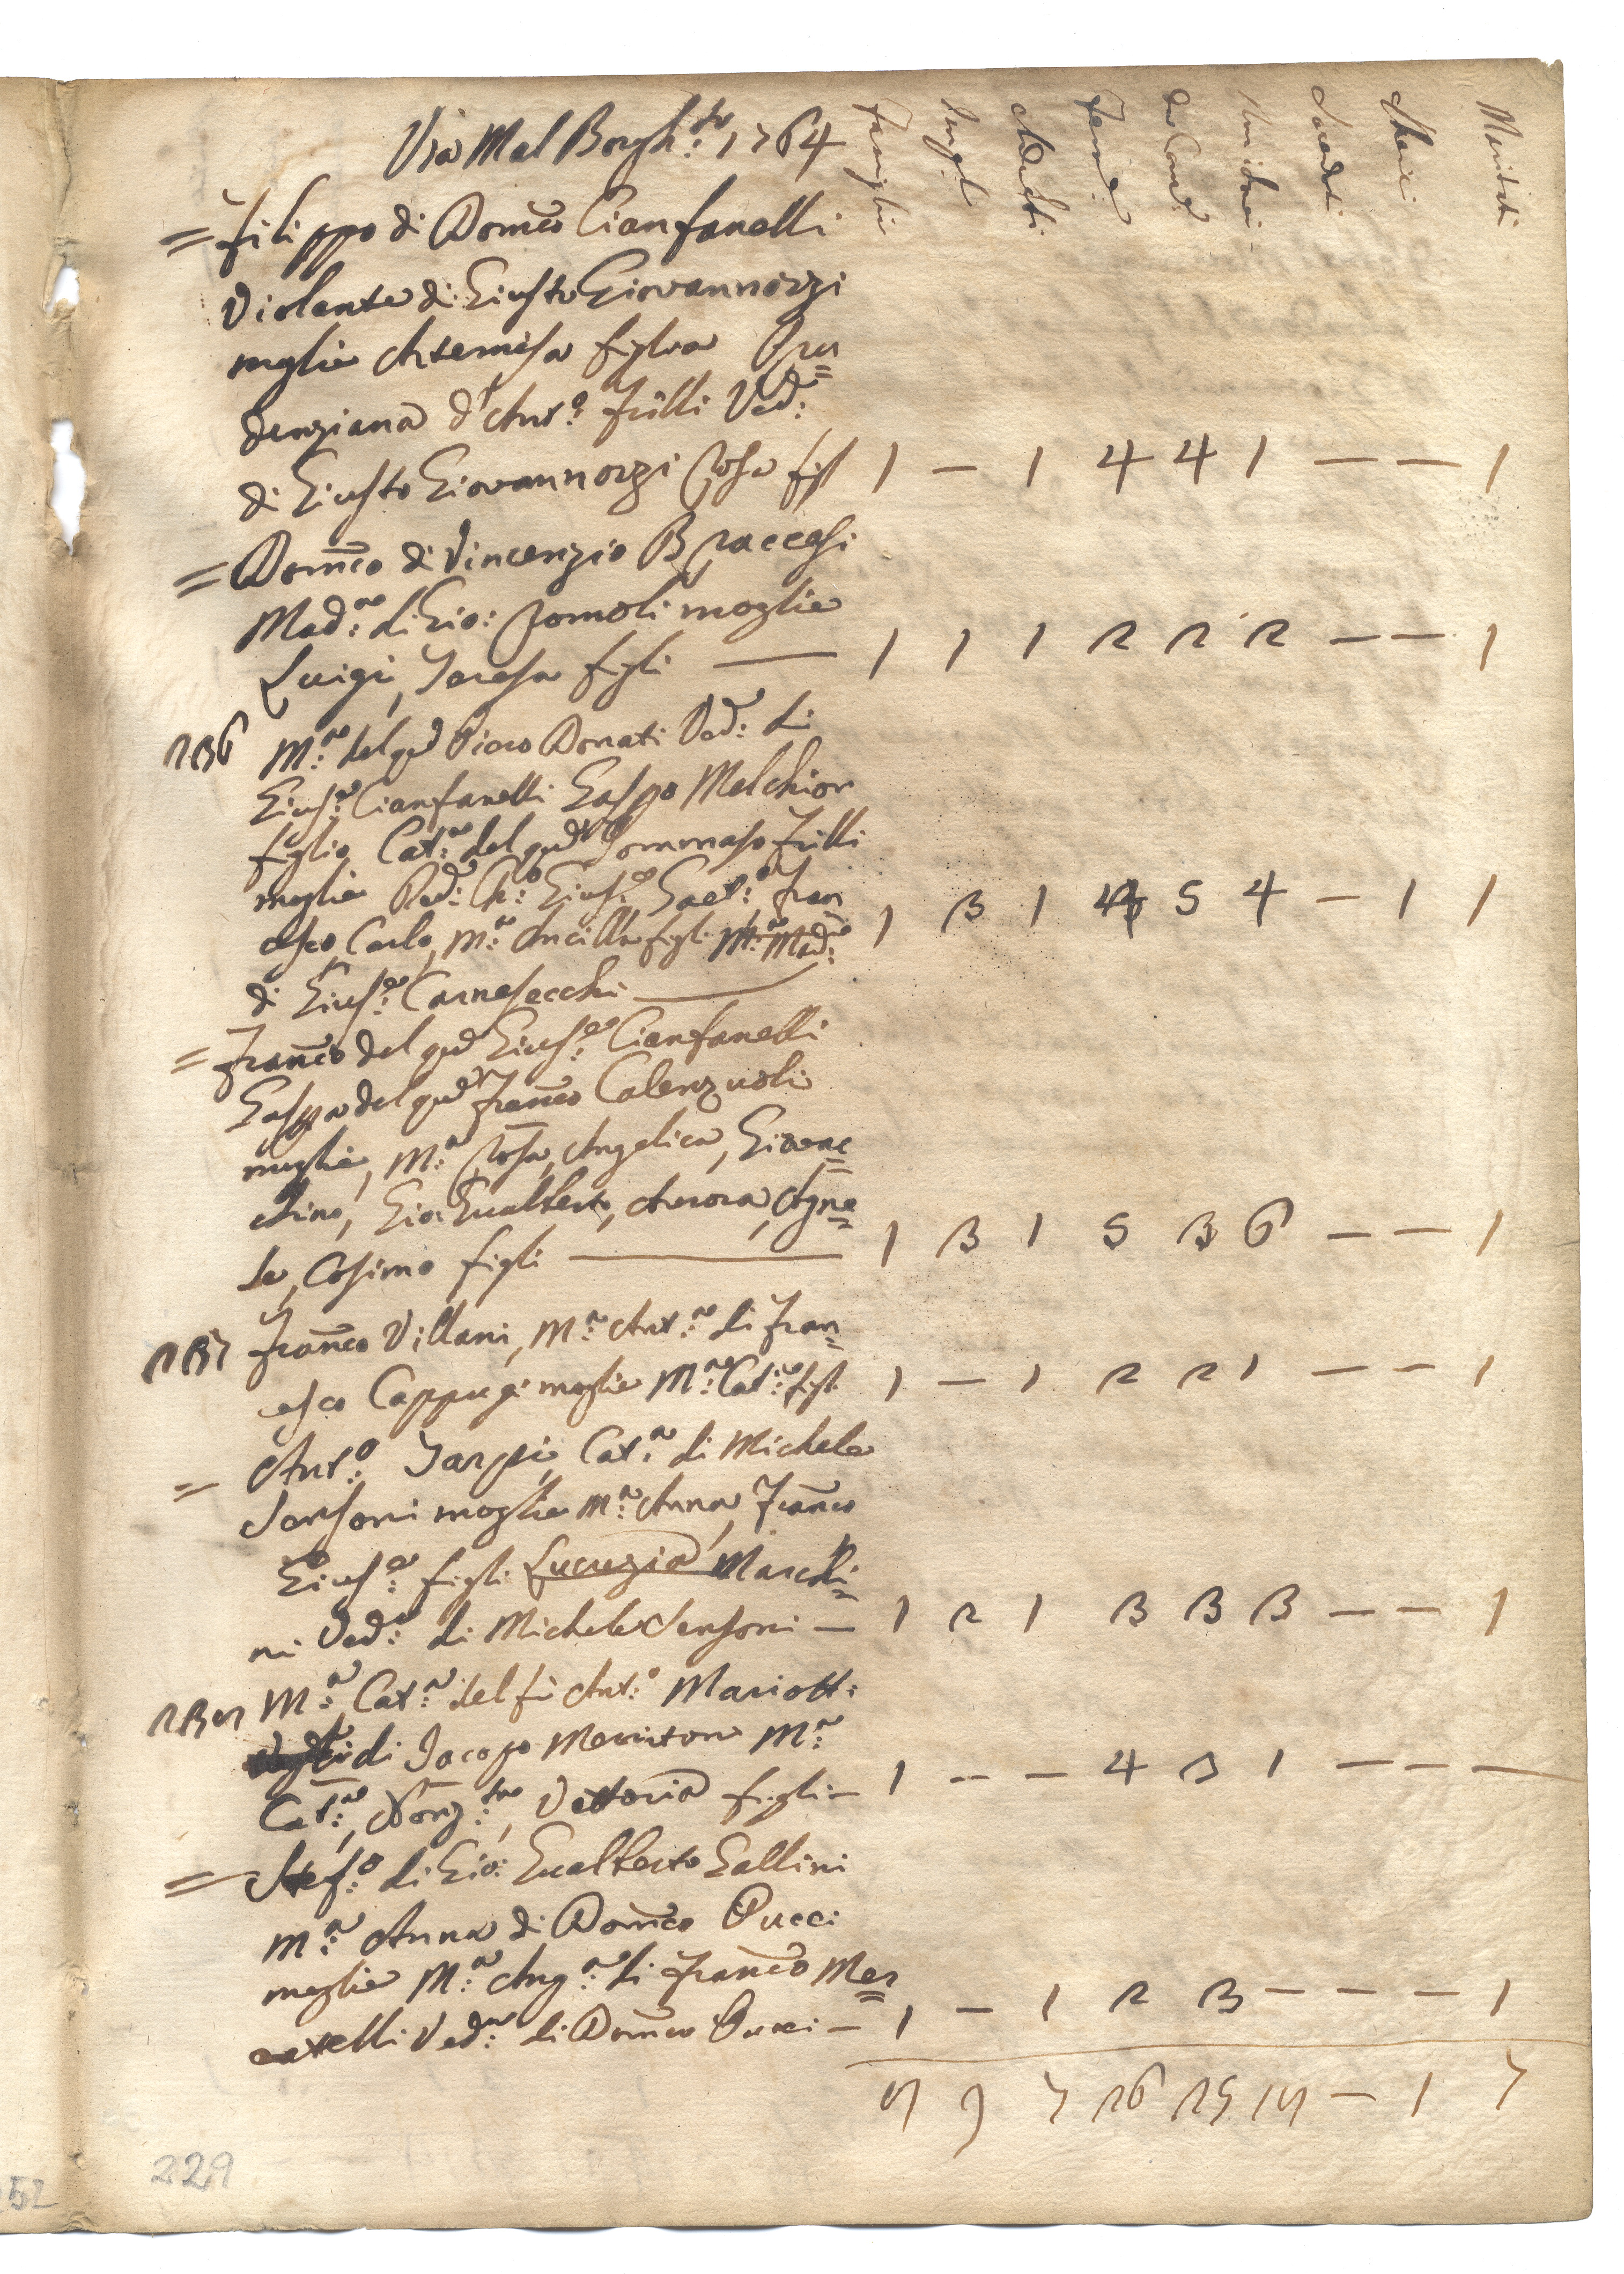 Via Mal Borgh:tto 1764
Famiglie Adulti Fem:e da Com: Sacerdoti Cherici Mariti
= Filippo di Dom̃co Cianfanelli
Violante di Giusto Giovannozzi
moglie Artemisa figlia Pru=
denziana d'Ant:o Frilli Ved:
di Giusto Giovannozzi Rosa figl 1 — 1 4 4 1 — — 1
= Dom̃co di Vincenzio Braccesi
Mad:a di Gio: Romoli moglie
Luigi, Teresa figli — 1 1 1 2 2 2 — — 1
236 M:a del qd Piero Donati Ved: di
Gius:e Cianfanelli Gaspo Melchior
figlio Cat:a del qd Tommaso Frilli
moglie Ved: Gius:e Gaet:o Fran
cesco, Carlo, M:a Ancilla figli M:a Mad:a 1 3 1 4 5 4 — 1 1
di Gius:e Carnesecchi —
= Fran̄co del qd Gius:e Cianfanelli
Gaspa del qd Fran̄co Calenzuoli
moglie, M:a Rosa, Angelica, Giovac=
chino, Gio: Gualberto, Aurora, Agne=
se, Cosimo figli — 1 3 1 5 3 6 — — 1
237 Fran̄co Villani, M:a Ant:a di Fran=
cesco Cappugi moglie M:a Cat:a figli 1 — 1 2 2 1 — — 1
= Ant:o Tarpi, Cat:a di Michele
Sensoni moglie M:a Anna, Fran̄co
Gius:e figli Lucrezia Marchi=
ni Ved:a di Michele Sensoni — 1 2 1 3 3 3 — — 1
M:a Cat:a del fù Ant:o Mariott:
di Jacopo Mannitoni M:a
Cat:a, Nonz:ta, Vettoria figli — 1 — — 4 3 1 — — —
= Stef:o di Gio: Gualberto Gallini
M:a Anna di Dom̃co Pucci
moglie M:a Ang:a di Fran̄co Mer=
catelli Ved:a di Dom̃co Pucci — 1 — 1 2 3 — — — 1
8 9 7 26 25 18 — 1 7
229
52